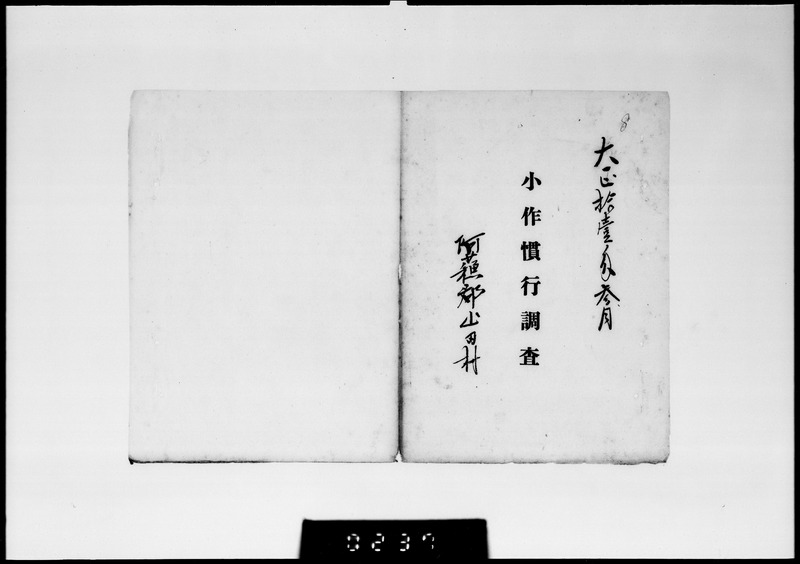 8
大正拾壹年参月
小作慣行調査
阿蘇郡山田村
0237